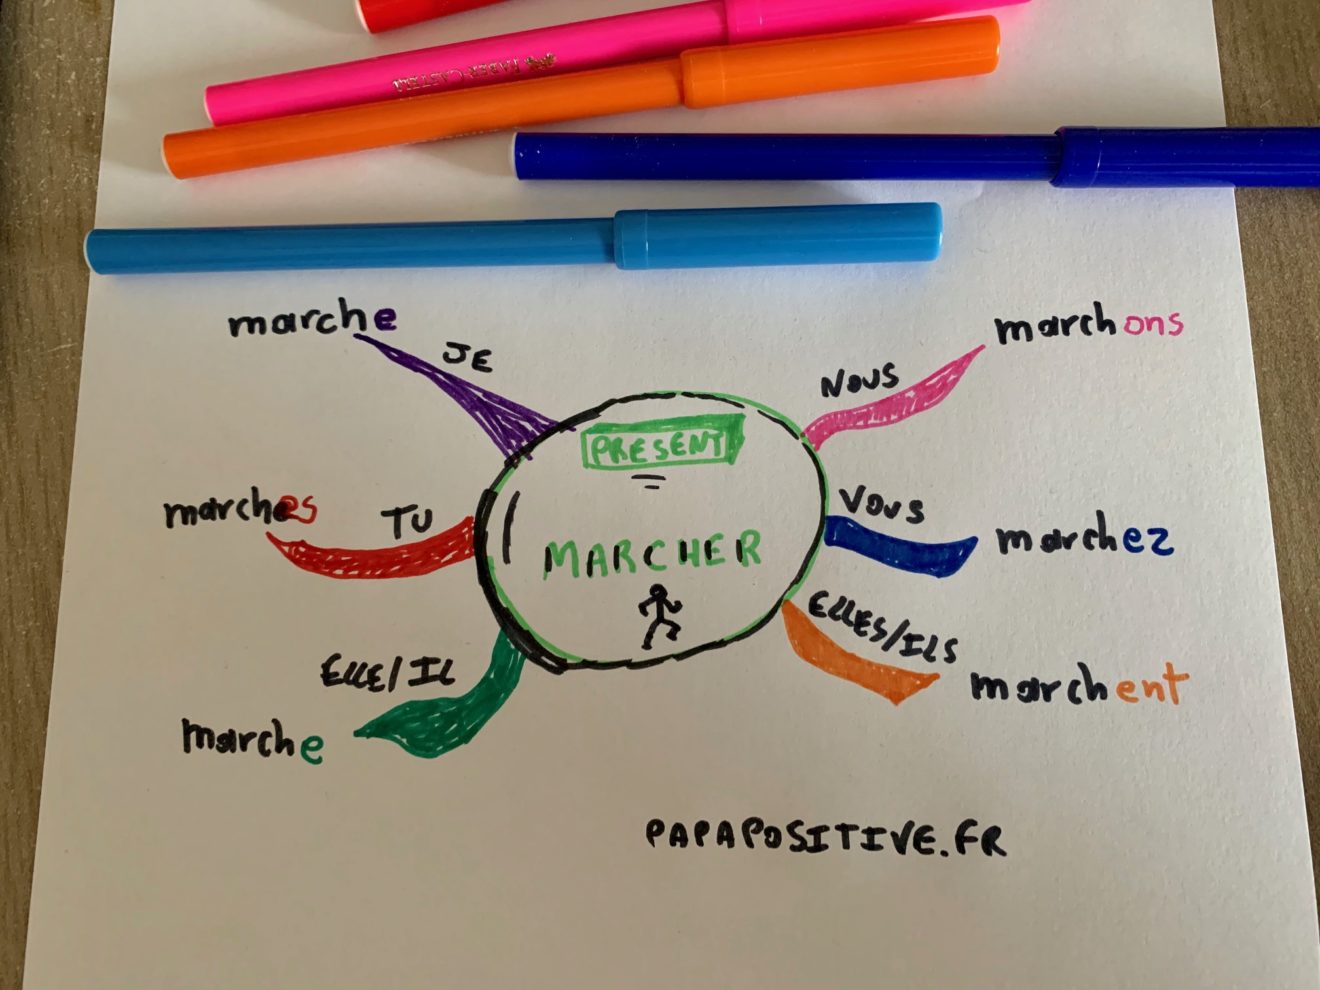 FABER-CASTELL
marche
JE
NOUS
marchons
PRESENT
marches
TU
VOUS
marchez
MARCHER
ELLE/IL
marche
ELLES/ILS
marchent
PAPAPOSITIVE.FR